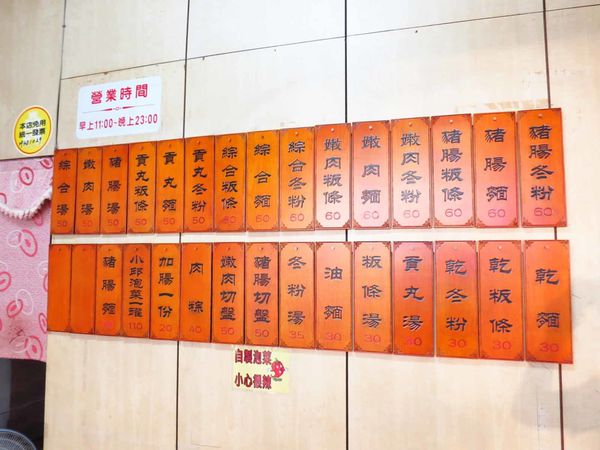 營業時間
早上11:00~晚上23:00
本店免用
統一發票
豬腸冬粉 60
豬腸麵 60
豬腸粄條 60
嫩肉冬粉 60
嫩肉麵 60
嫩肉粄條 60
綜合冬粉 60
綜合麵 60
綜合粄條 50
貢丸冬粉 50
貢丸麵 50
貢丸粄條 50
豬腸湯 50
嫩肉湯 50
綜合湯 50
乾麵 30
乾粄條 30
乾冬粉 30
貢丸湯 30
粄條湯 30
油麵 30
冬粉湯 35
豬腸切盤 50
嫩肉切盤 50
肉粽 40
加腸一份 20
小邱泡菜一罐 110
豬腸麵
自製泡菜
小心很辣